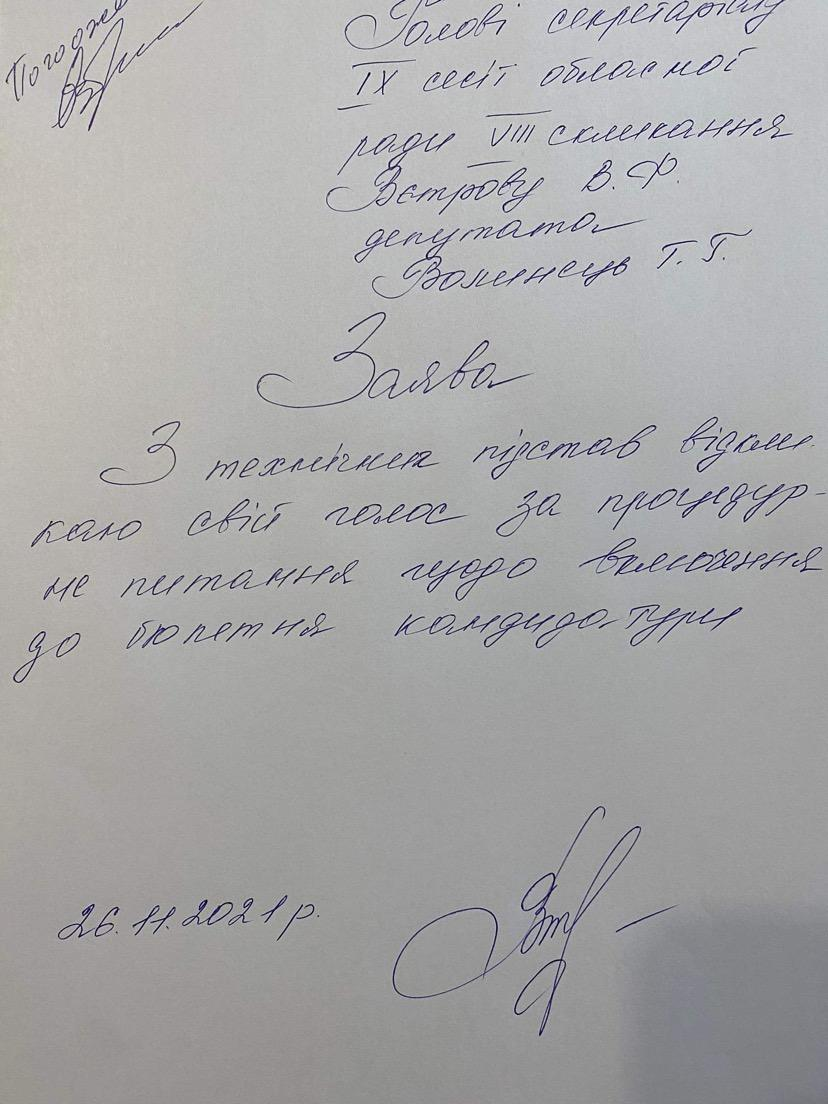 Погодже
Голові секретаріату
IX сесії обласної
ради VIII скликання
Вєтрову В.Ф.
депутата
Волинець Т.Г.
Заява
З технічних підстав відкли
каю свій голос за процедур-
не питання щодо включення
до бюлетня кандидатури
26.11.2021р.